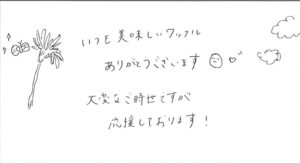 いつも美味しいワッフル
ありがとうございます
大変なご時世ですが
応援しております!